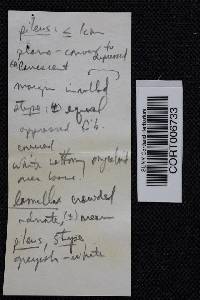 pileus: ≤ 1cm
plano-convex to
depressed
canescent
margin inrolled
stipe: (±) equal
appressed fib.
conical
white cottony mycelium
over base.
lamellae crowded
adnate, (±) narrow
pileus, stipe
greyish-white
SUNY Cortland Herbarium
CORT006733